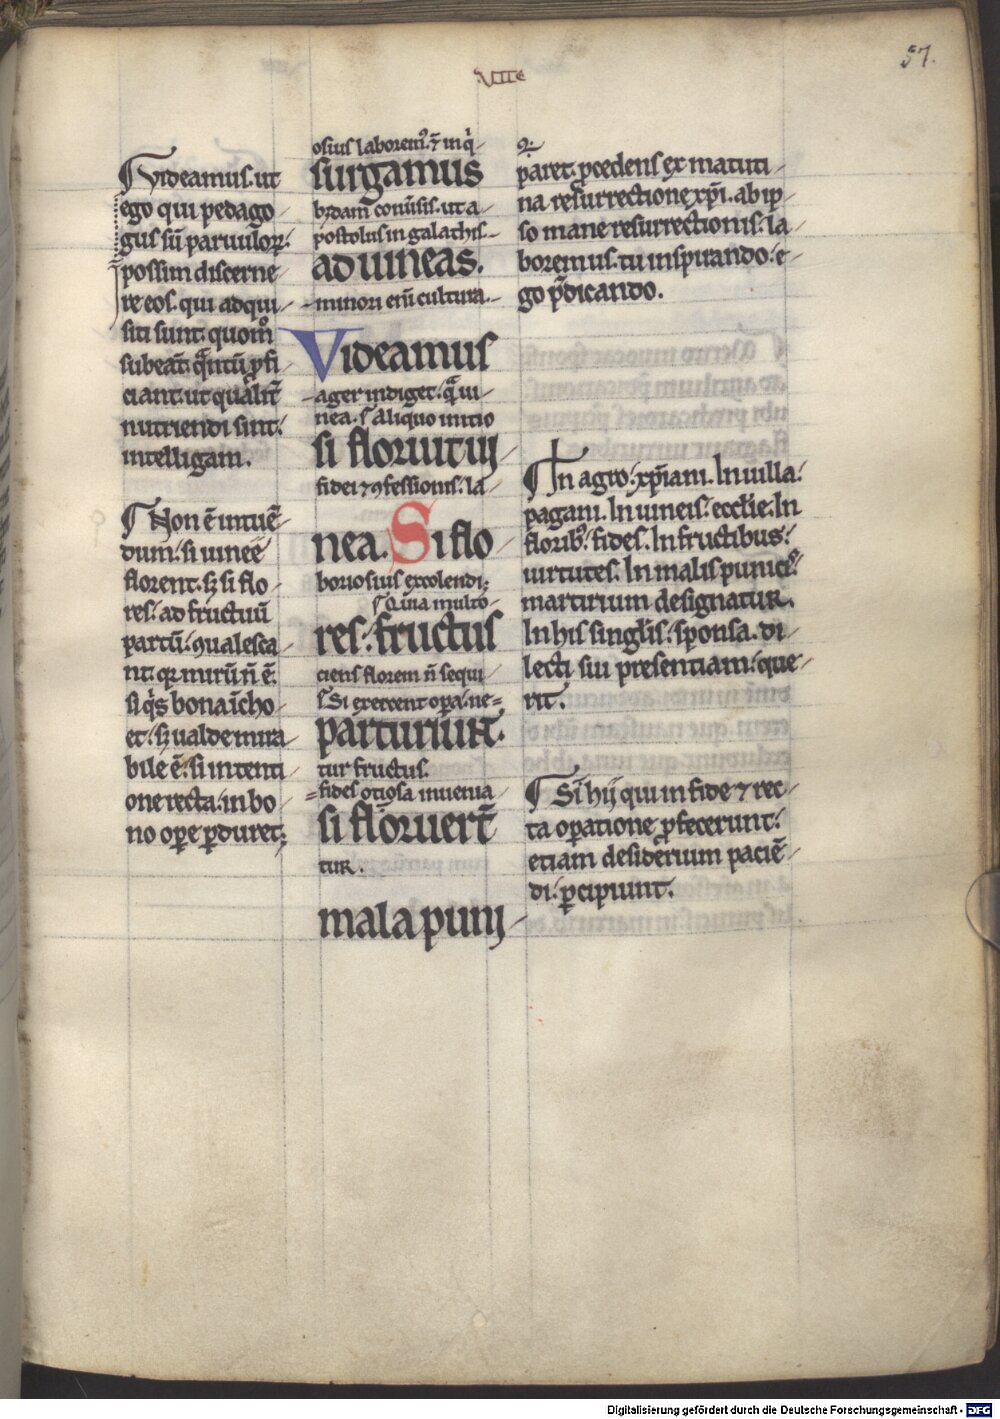 57.
VIII
¶ Videamus. ut
ego qui pedago-
gus sū paruuloꝝ:
possim discerne-
re eos. qui adqui-
siti sunt: quom̊
subeāt: q̄ntū ꝓfi-
ciant: ut qualit̄
nutriendi sint:
intelligam.
¶ Non ē intuē-
dum: si uineē
florent. sꝫ si flo-
res: ad fructuū
partū: ꝯualesca-
nt: qꝛ mirū ñ ē.
si qͥs bona īcho-
et: sꝫ ualde mira-
bile ē: si intenti-
one recta: in bo-
no oꝑe ꝑduret:
osius laborem᷒. ⁊ in qͥ-
surgamus
postolus in galathis-
ad uineas.
-minori eni cultura-
Videamus
-ager indiget: qᷓ ui-
nea. Aliquo initio
si floruit uı-
fidei ⁊ ꝯfessionis. la-
nea. Si flo-
boriosius excolendi:
Quia multo-
res: fructus
ciens florem ñ sequi-
Si exercent oꝑa: ne=
parturiunt:
tur fructus.
=fides otiosa inuenia-
si floruert̄
tur.
mala puni-
paret. p̄cedens ex matuti-
na resurrectione xp̄i. ab ip-
so mane resurrectionis: la-
boremus: tu inspirando: e-
go p̄dicando.
¶ In agro: xp̄iani. In uilla:
pagani. In uineis: eccl̄ie. In
florib᷒: fides. In fructibus:
uirtutes. In malis punicis:
martirium designatur.
In his singl̄is: sponsa. di-
lecti sui presentiam: que-
rit.
¶ Si hij qui in fide ⁊ rec-
ta oꝑatione ꝓfecerunt:
etiam desiderium paciē-
di: ꝑcipiunt.
Digitalisierung gefördert durch die Deutsche Forschungsgemeinschaft - DFG